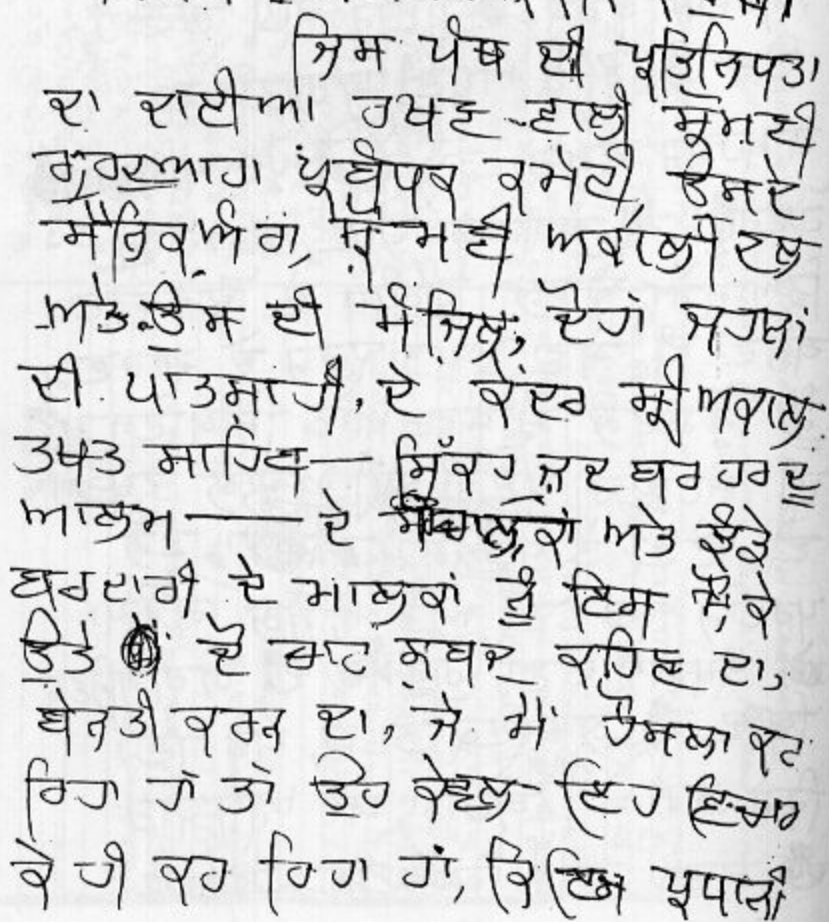 ਜਿਸ ਪੰਥ ਦੀ ਪ੍ਰਤਿਨਿਧਤਾ
ਦਾ ਦਾਈਆ ਰਖਣ ਵਾਲੀ ਸ਼੍ਰੋਮਣੀ
ਗੁਰਦੁਆਰਾ ਪ੍ਰਬੰਧਕ ਕਮੇਟੀ, ਉਸਦੇ
ਸੈਨਿਕ ਅੰਗ, ਸ਼੍ਰੋਮਣੀ ਅਕਾਲੀ ਦਲ
ਅਤੇ ਉਸ ਦੀ ਮੰਜ਼ਿਲ, ਦੋਹਾਂ ਜਹਾਨਾਂ
ਦੀ ਪਾਤਸ਼ਾਹੀ, ਦੇ ਕੇਂਦਰ ਸ੍ਰੀ ਅਕਾਲ
ਤਖਤ ਸਾਹਿਬ — ਸਿੱਕਹ ਜ਼ਦ ਬਰ ਹਰ ਦੁ
ਆਲਮ — ਦੇ ਸੰਚਾਲਕਾਂ ਅਤੇ ਝੰਡੇ
ਬਰਦਾਰੀ ਦੇ ਮਾਲਕਾਂ ਨੂੰ ਇਸ ਮੌਕੇ
ਉਤੇ ਦੋ ਚਾਰ ਸ਼ਬਦ ਕਹਿਣ ਦਾ,
ਬੇਨਤੀ ਕਰਨ ਦਾ, ਜੇ ਮੈਂ ਹੌਸਲਾ ਕਰ
ਰਿਹਾ ਹਾਂ ਤਾਂ ਉਹ ਕੇਵਲ ਇਹ ਵਿਚਾਰ
ਕੇ ਹੀ ਕਰ ਰਿਹਾ ਹਾਂ, ਕਿ ਇਸ